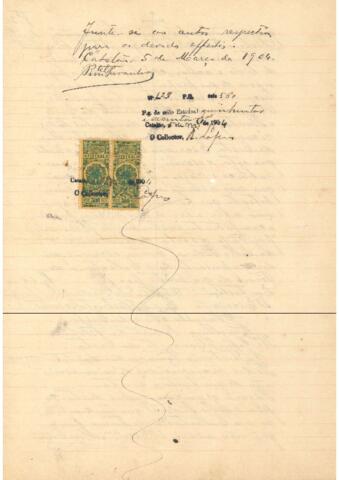 Junte-se aos autos respectivos
para os devidos effeitos.
Catalão, 5 de Março de 1904.
Nº 128 P.G. reis 560
Pg. de sello Estadual quinhentos
e sesenta rs
Catalão, 5 de de 1904
O Collector, Lopes
Cata 190
O Collector, Lopes